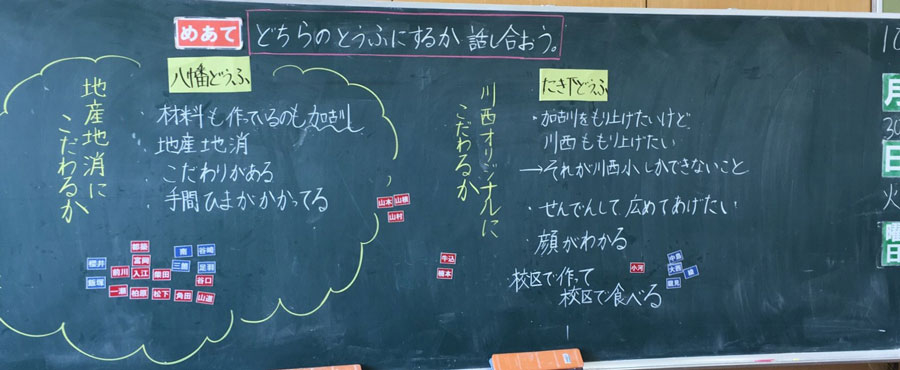 めあて
どちらのとうふにするか 話し合おう。
八幡どうふ
地産地消に
こだわるか
・材料も作っているのも加古川
・地産地消
・こだわりがある
・手間ひまがかかってる
山本 山根
山村
都築
南 谷崎
櫻井
富岡
三鹿 足羽
前川 入江 柴田
飯塚
谷口
一瀬 柏原 松下 角田 山道
川西オリジナルに
こだわるか
牛込
橋本
たき下どうふ
・加古川をもり上げたいけど
川西ももり上げたい
→それが川西小しかできないこと
・せんでんして広めてあげたい
・顔がわかる
校区で作って
校区で食べる
小河
中島
大西
鏡見
10
月
30
日
火
曜日